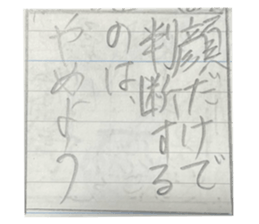 顔だけで
判断する
のは、
やめよう